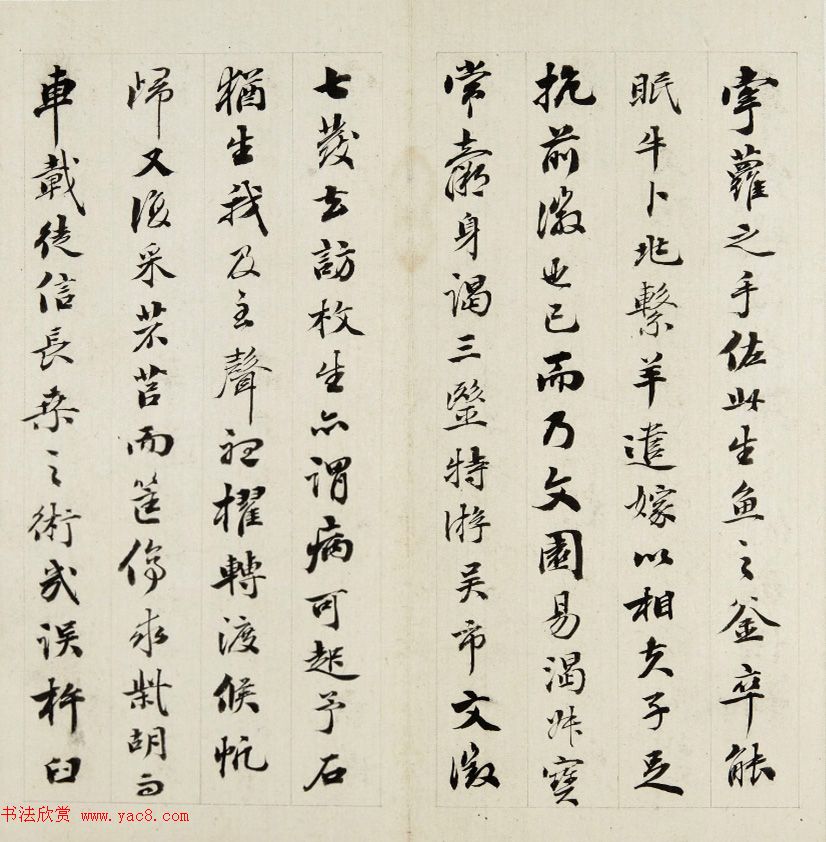 蘿之手佐此生魚之釜卒能
眠牛卜兆繫羊遣嫁以相夫子足
抗前徽也已而乃文園易渴寶
常虧身謁三醫特游吳市文徵
七發去訪枚生亦謂病可起予石
猶生我及至聲櫂轉渡候帆
歸又復采芣苢而筐傷求胡
車載徒信長桑之術誤杵臼
书法欣赏 www.yac8.com